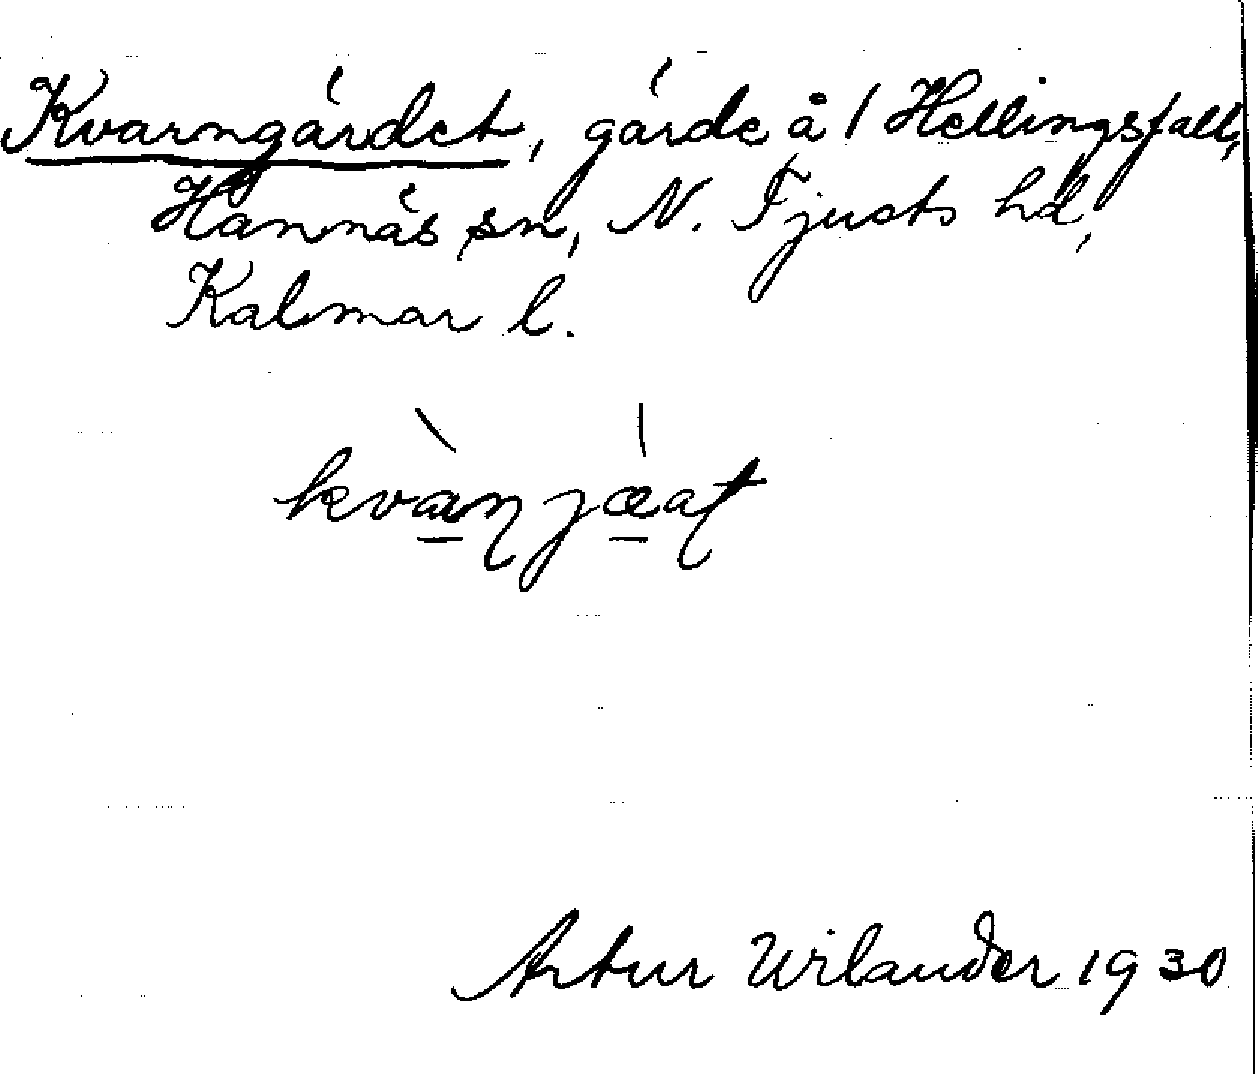 Kvarngärdet, gärde å 1 Hellingsfall,
Hannäs sn, N. Tjusts hd,
Kalmar l.
Artur Wilander 1930